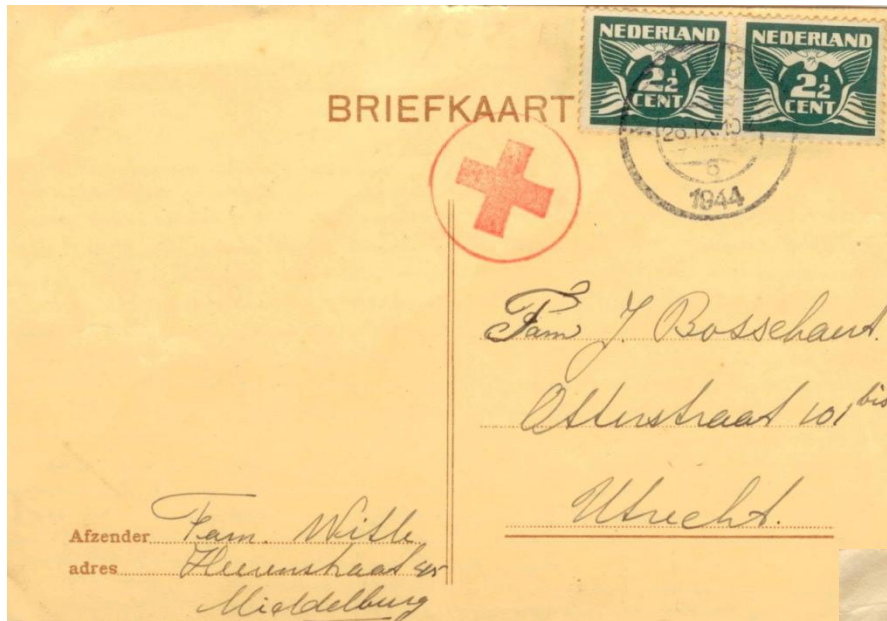 NEDERLAND NEDERLAND
2½ 2½
CENT CENT
BRIEFKAART
1944
Fam J. Bosschaert.
Otterstraat 101 bis
Utrecht.
Afzender Fam. Witte
adres Heerenstraat
Middelburg